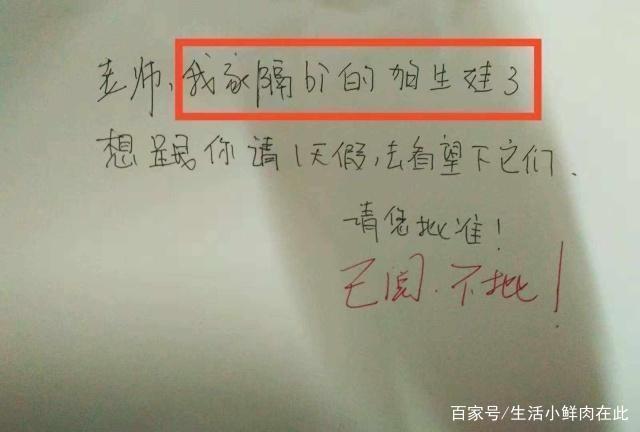 老师,我家隔bì的狗生娃了
想跟你请1天假,去看望下它们.
请您批准!
已阅.不批!
百家号/生活小鲜肉在此